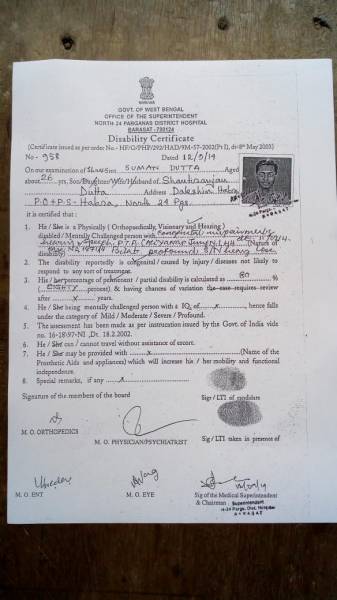 GOVT. OF WEST BENGAL
OFFICE OF THE SUPERINTENDENT
NORTH 24 PARGANAS DISTRICT HOSPITAL
BARASAT - 700124
Disability Certificate
(Certificate issued as per order No.- HF/O/PHP/292/HAD/9M-57-2002(Pt.I), dt-8th May 2003)
No - 958 Dated 12/5/19
On our examination of Shri/Smt SUMAN DUTTA Aged
about 26 yrs, Son/Daughter/Wife/Husband of
Dutta Address Dakshin Habra
P.O + P.S - Habra, North 24 Pgs.
it is certified that :
1. He / She is a Physically ( Orthopaedically, Visionary and Hearing )
disabled / Mentally Challenged person with impairment
hearing (Nature of
disability) profound loss
2. The disability reportedly is congenital / caused by injury / diseases not likely to
respond to any sort of treatment.
3. His / her percentage of permanent / partial disability is calculated as 80 %
( EIGHTY percent) & having chances of variation the case require review
after x years.
4. He / She being mentally challenged person with a IQ of x, hence falls
under the category of Mild / Moderate / Severe / Profound.
5. The assessment has been made as per instruction issued by the Govt. of India vide
no. 16-18\97-NI .Dt. 18.2.2002.
6. He / She can / cannot travel without assistance of escort.
7. He / She may be provided with x (Name of the
Prosthetic Aids and appliances) which will increase his / her mobility and functional
independence.
8. Special remarks, if any x
Signature of the members of the board Sign / LTI of candidate
M. O. ORTHOPEDICS
M. O. PHYSICIAN/PSYCHIATRIST Sig / LTI taken in presents of
M. O. ENT M. O. EYE Sig of the Medical Superintendent
& Chairman Superintendent
N-24 Pargs. Dist. Hospital
BARASAT